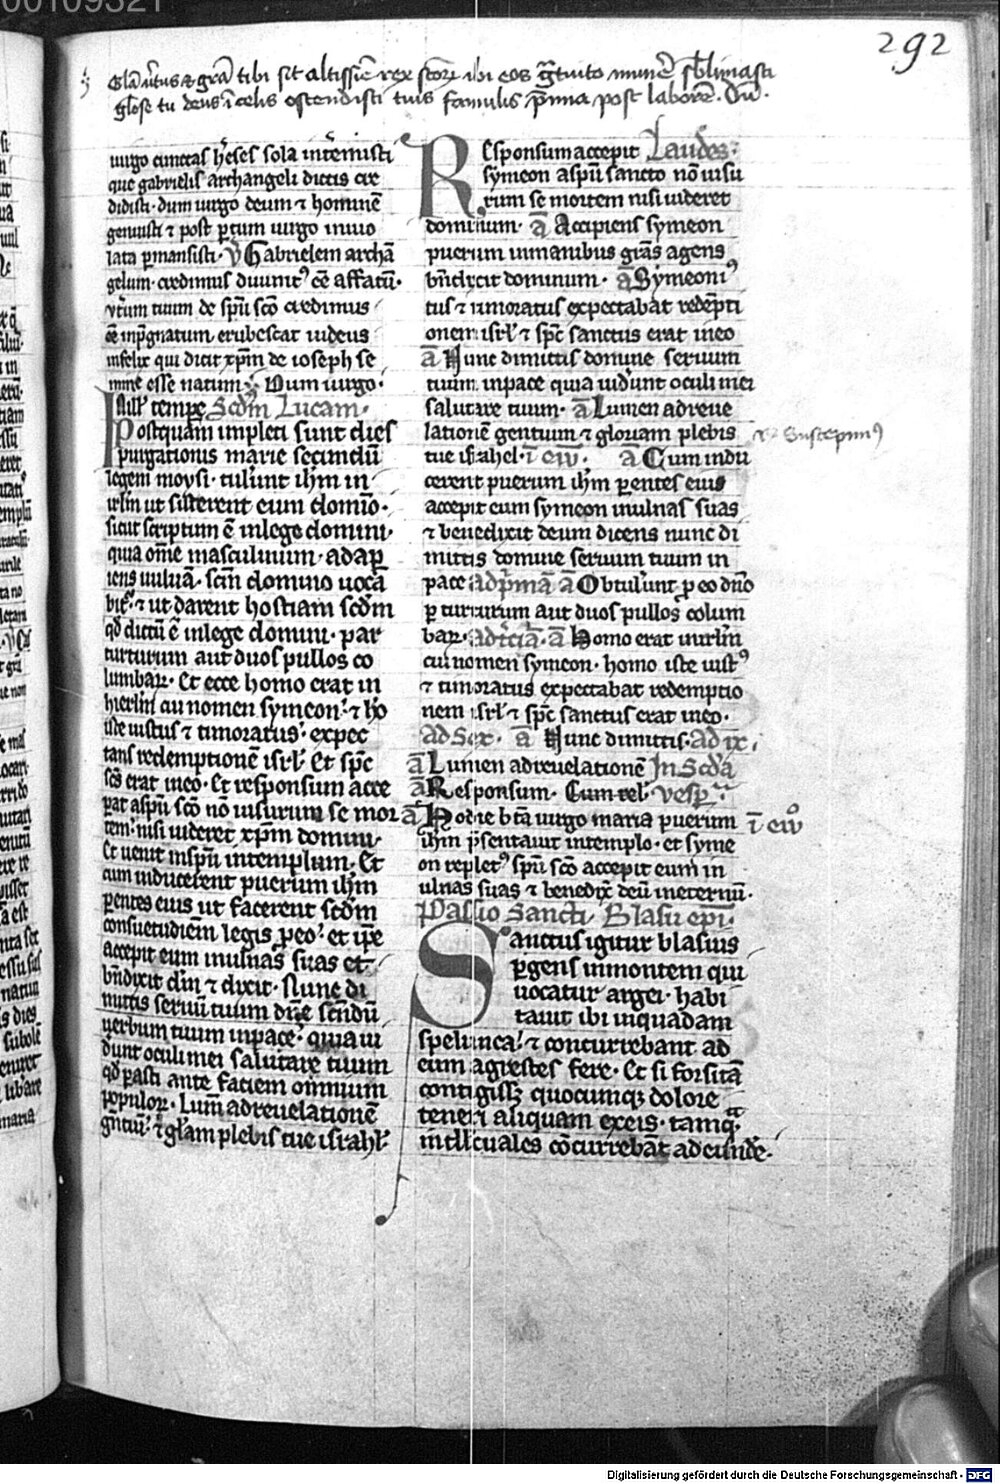 292
Gła ỽtus & grã tibi sit altissie rex scoꝝ ibi eos gtuito munẽ sblimasti
glose tu deus ĩ celis ostendisti tuis famulis pmia post laborẽ. Dñi.
uirgo cunctas hẽses sola intemisti
que gabrielis archangeli dictis cre
didisti. dum uirgo deum ⁊ hominẽ
genuisti ⁊ post ptum uirgo inuio
lata pmansisti. Gabrielem archã
gelum. credimus diuinitꝰ eẽ affatũ.
utrum tuum de spũ scõ credimus
eẽ inpgnatum erubescat iudeus
infelix qui dicit xpm de ioseph se
mine esse natum. Dum uirgo.
Illo tempe Scdm Lucam.
Postquam impleti sunt dies
purgationis marie secundũ
legem moysi. tulunt ihm in
irlm ut sisterent eum domio.
sicut scriptum ẽ in lege domini.
quia om̃e masculinum. adap
iens uuluã. scm domino uocã
bit. ⁊ ut darent hostiam scdm
qd dictũ ẽ in lege domini. par
turturum aut duos pullos co
lumbaꝝ. Et ecce homo erat in
hierlm cui nomen symeon. ⁊ ho
iste iustus ⁊ timoratus. expec
tans redemptionẽ isrl. Et spc
scs erat in eo. Et responsum acce
pat a spũ scõ nõ uisurum se mor
tem. nisi uideret xpm domini.
Et uenit in spũ in templum. Et
cum inducerent puerum ihm
pentes eius ut facerent scdm
consuetudiem legis p eo. et ipe
accepit eum in ulnas suas et
bñdixit dm ⁊ dixit. Nunc di
mittis seruũ tuum dñe scdũ
uerbum tuum in pace. quia ui
dunt oculi mei salutare tuum
qd pasti ante faciem omnium
populoꝝ. Lum ad reuelationẽ
gntiũ. ⁊ glam plebis tue israhl.
Responsum accepit Laudes.
symeon a spũ sancto nõ uisu
rum se mortem nisi uideret
dominum. ã Accipiens symeon
puerum in manibus grãs agens
bñdixit dominum. ã Symeon iꝰ
tus ⁊ timoratus expectabat redẽpti
onem isrl ⁊ spc sanctus erat in eo
ã Nunc dimittis domine seruum
tuum in pace quia uidunt oculi mei
salutare tuum. ã Lumen ad reue
lationẽ gentium ⁊ gloriam plebis ℟ Suscepimꝰ
tue israhel. ĩ eio. ã Cum indu
cerent puerum ihm pentes eius
accepit eum symeon in ulnas suas
⁊ benedixit deum dicens nunc di
mittis domine seruum tuum in
pace ad pmã ã Obtulunt p eo dño
p turturum aut duos pullos colum
baꝝ. ad tciã. ã Homo erat in irlm
cui nomen symeon. homo iste iustꝰ
⁊ timoratus expectabat redemptio
nem isrl ⁊ spc sanctus erat in eo.
ad Sex. ã Nunc dimittis. Ad ix.
ã Lumen ad reuelationẽ In Scdã
ã Responsum. Cum rel. vesp
ã Hodie bta uirgo maria puerum ĩ eio
ihm psentauit in templo. et syme
on repletꝰ spũ scõ accepit eum in
ulnas suas ⁊ benedix deũ in eternũ.
Passio Sancti Blasii epi.
Sanctus igitur blasius
pgens in montem qui
uocatur argei. habi
tauit ibi in quadam
spelunca. ⁊ concurrebant ad
eum agrestes fere. Et si forsitã
contigissz quocumqz dolore
teneri aliquam ex eis. tamqz
intllectuales cõcurrebãt ad eũnde.
Digitalisierung gefördert durch die Deutsche Forschungsgemeinschaft - DFG